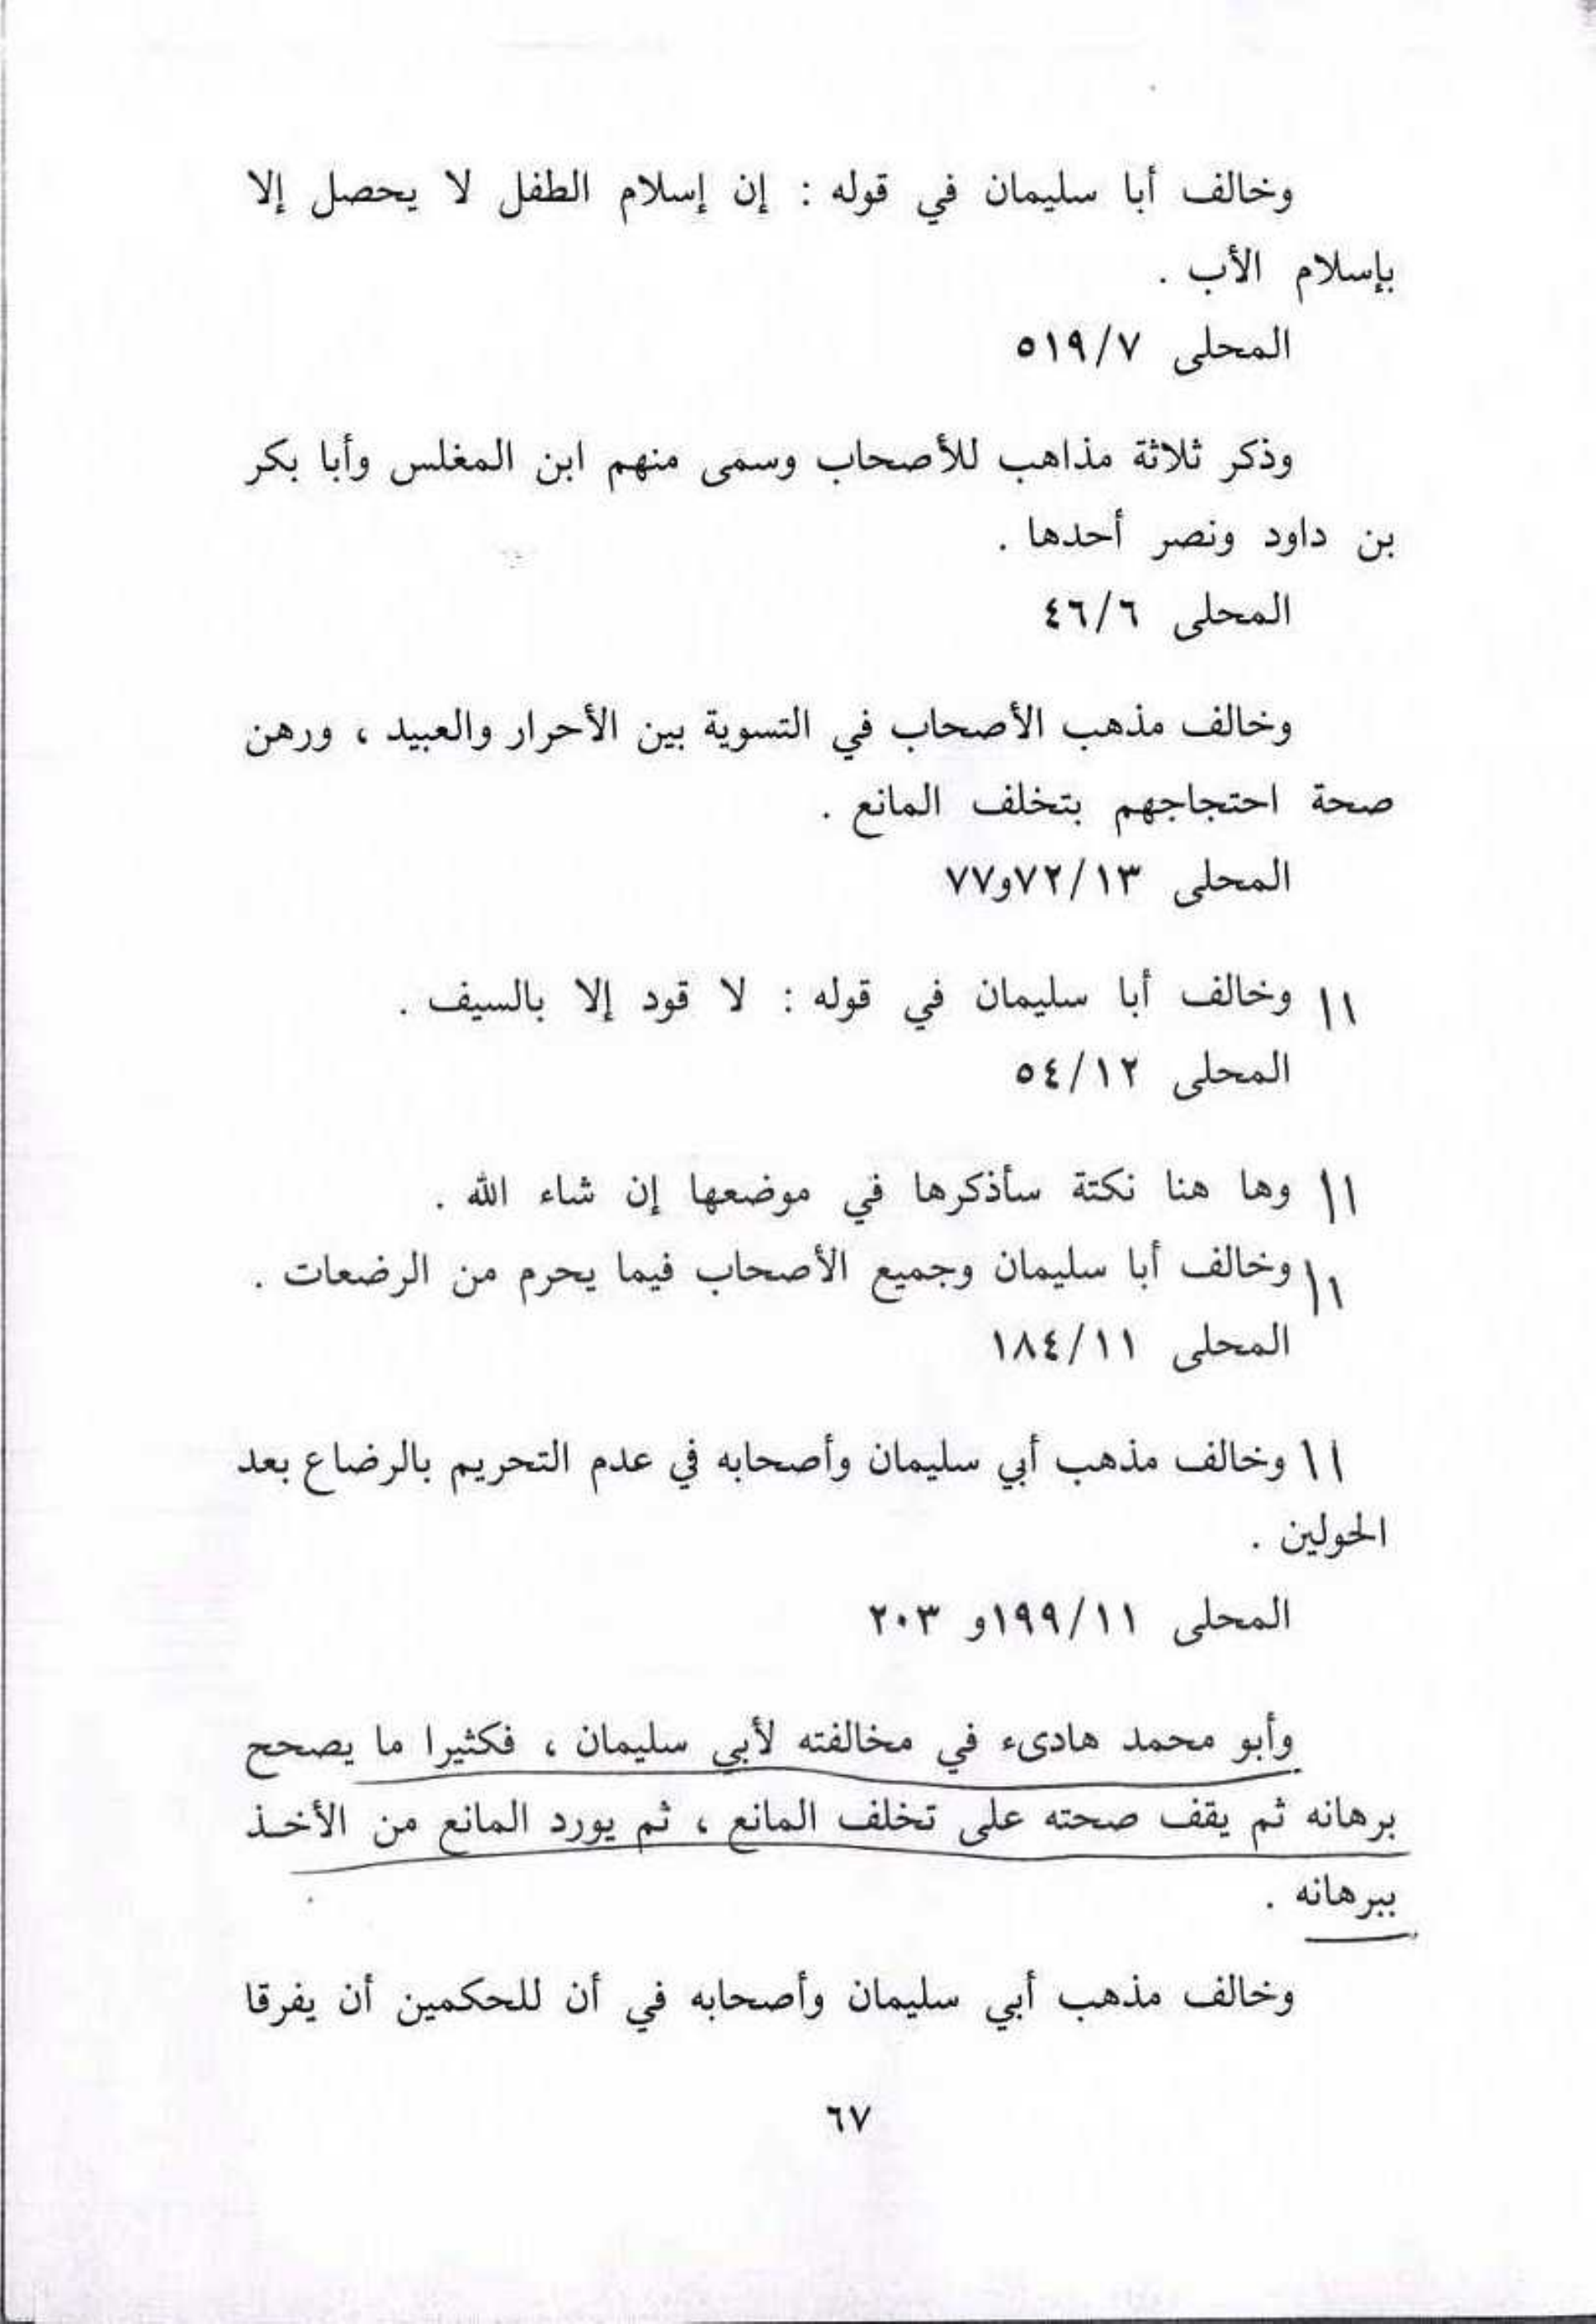 وخالف أبا سليمان في قوله : إن إسلام الطفل لا يحصل إلا
بإسلام الأب .
المحلى ٥١٩/٧
وذكر ثلاثة مذاهب للأصحاب وسمى منهم ابن المغلس وأبا بكر
بن داود ونصر أحدها .
المحلى ٤٦/٦
وخالف مذهب الأصحاب في التسوية بين الأحرار والعبيد ، ورهن
صحة احتجاجهم بتخلف المانع .
المحلى ٧٢/١٣و٧٧
وخالف أبا سليمان في قوله : لا قود إلا بالسيف .
المحلى ٥٤/١٢
وها هنا نكتة سأذكرها في موضعها إن شاء الله .
وخالف أبا سليمان وجميع الأصحاب فيما يحرم من الرضعات .
المحلى ١٨٤/١١
وخالف مذهب أبي سليمان وأصحابه في عدم التحريم بالرضاع بعد
الحولين .
المحلى ١٩٩/١١و ٢٠٣
وأبو محمد هادىء في مخالفته لأبي سليمان ، فكثيرا ما يصحح
برهانه ثم يقف صحته على تخلف المانع ، ثم يورد المانع من الأخذ
ببرهانه .
وخالف مذهب أبي سليمان وأصحابه في أن للحكمين أن يفرقا
٦٧